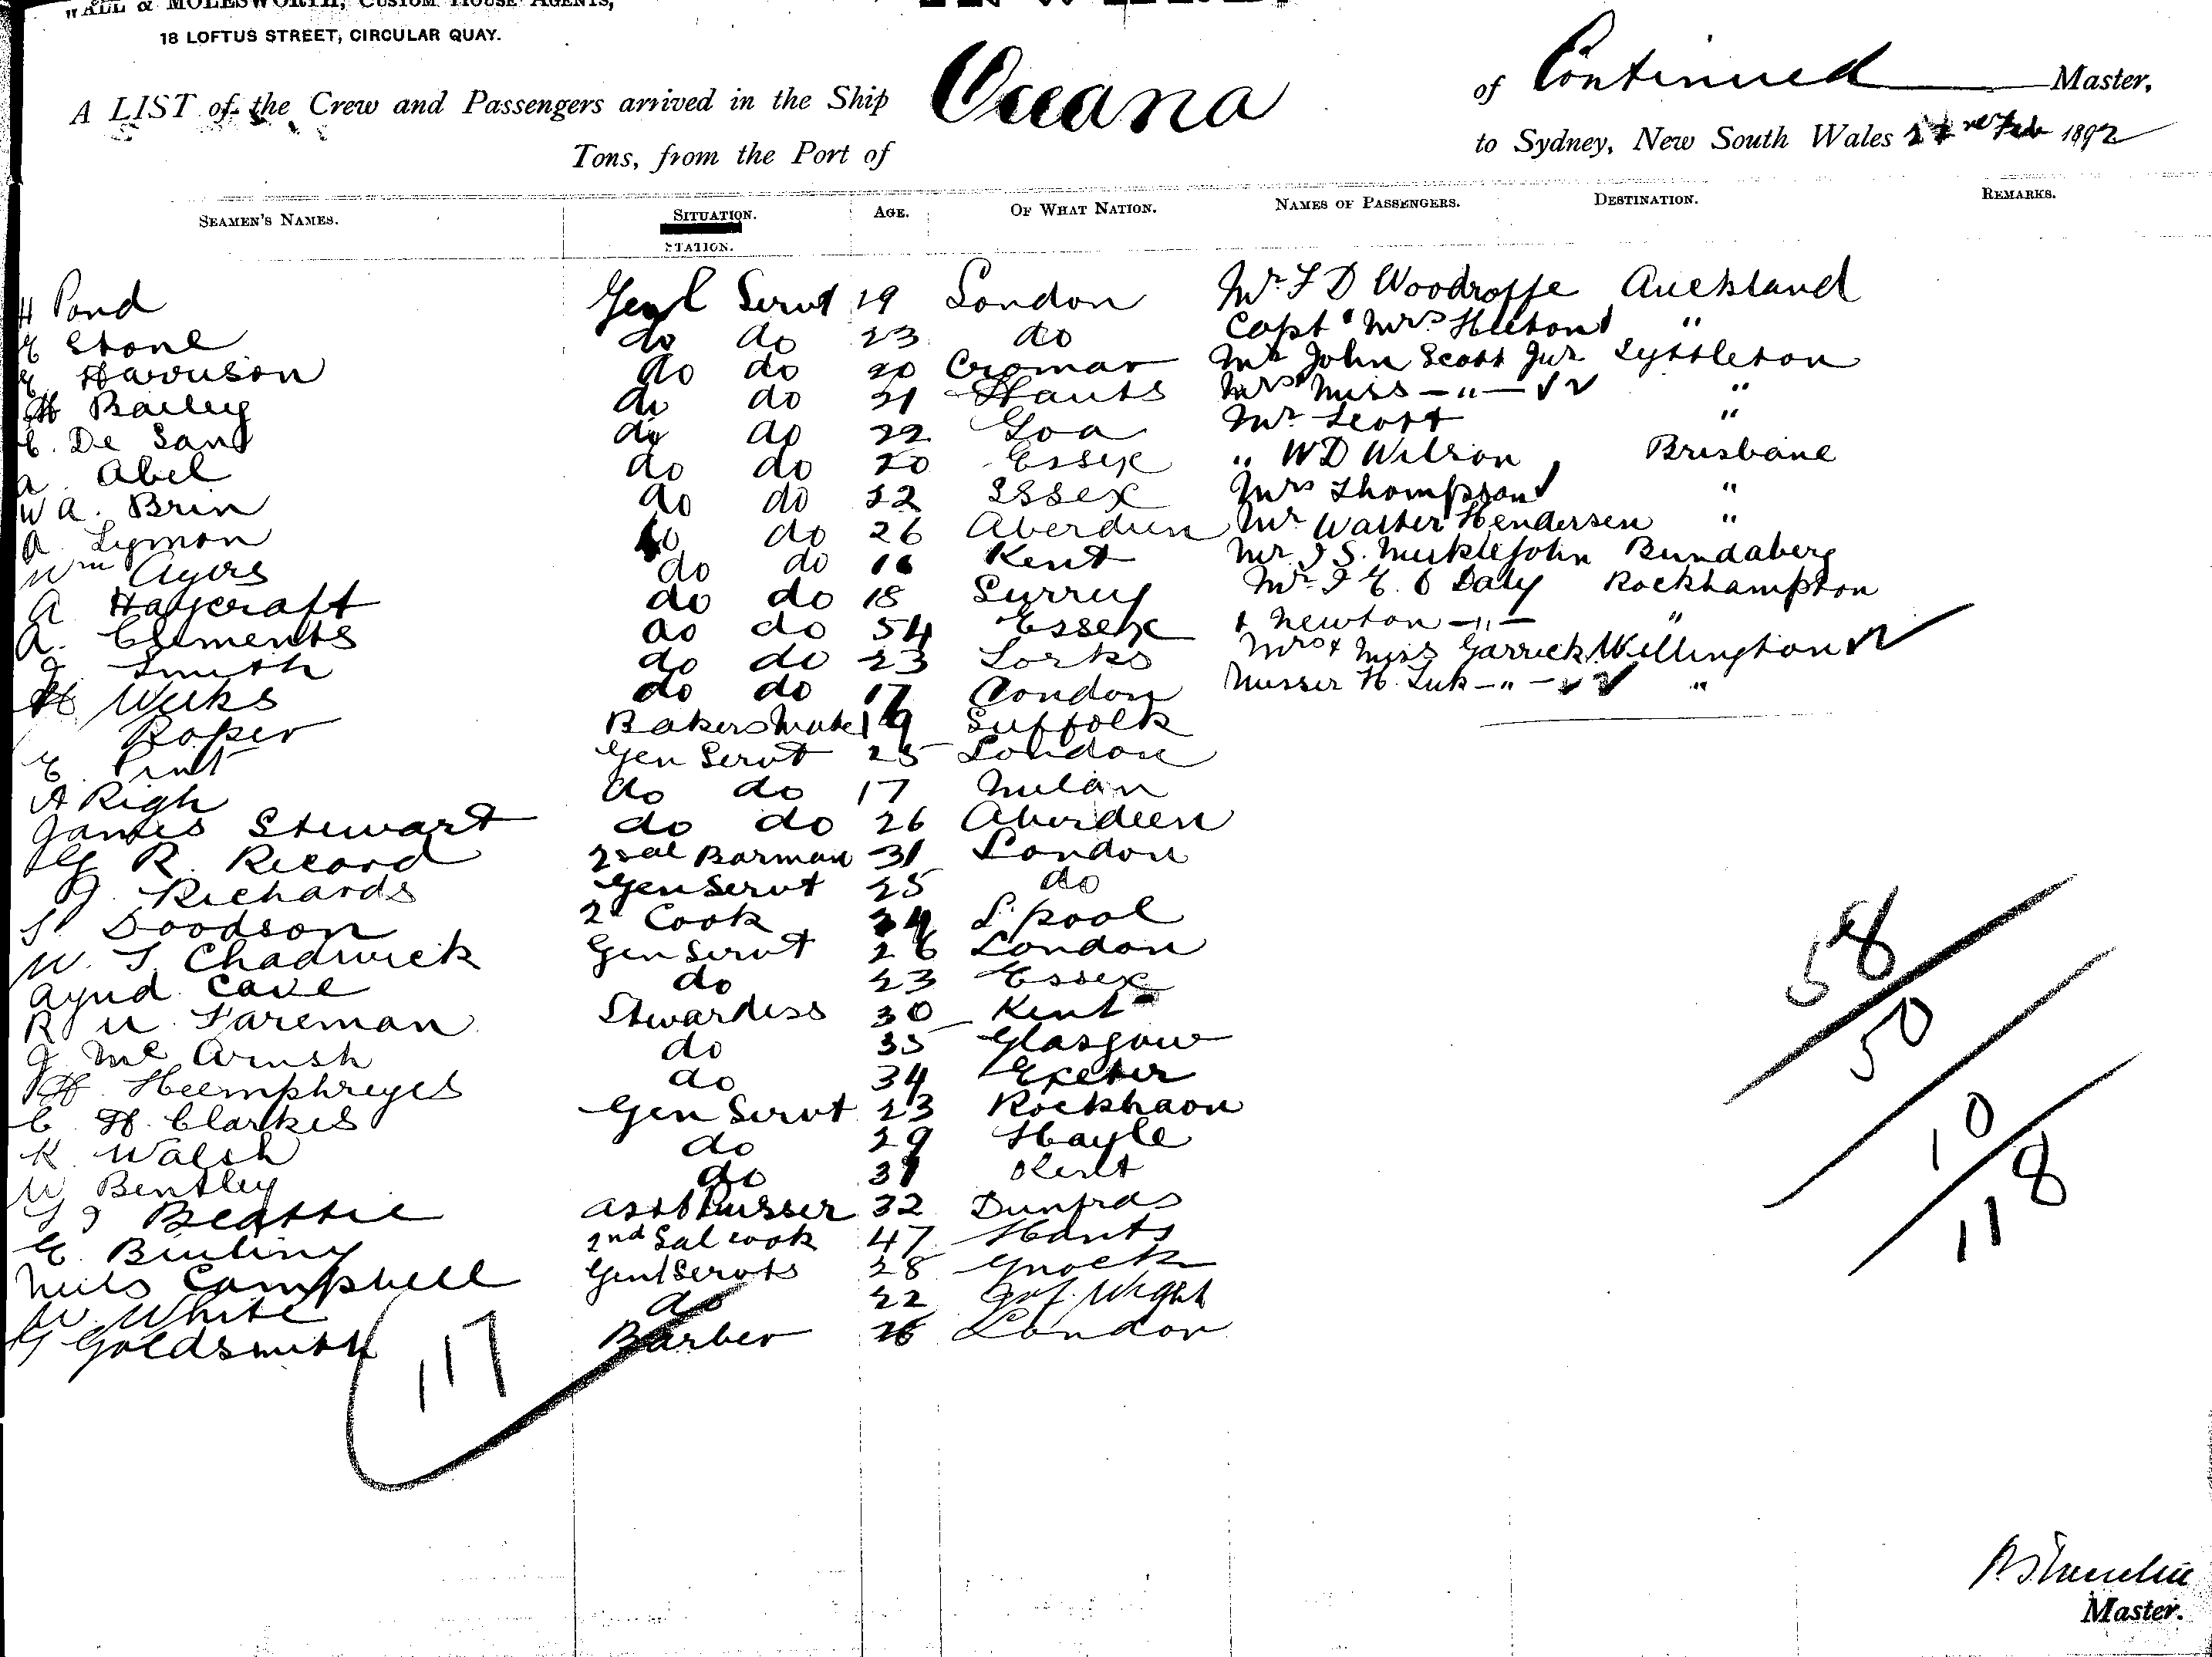 WALL & MOLESWORTH, CUSTOM HOUSE AGENTS,
18 LOFTUS STREET, CIRCULAR QUAY.
A LIST of the Crew and Passengers arrived in the Ship Oceana of Continued Master,
Tons, from the Port of to Sydney, New South Wales Feb 1892
SEAMEN'S NAMES. SITUATION. AGE. OF WHAT NATION. NAMES OF PASSENGERS. DESTINATION. REMARKS.
STATION.
H Pond Genl Servt 19 London Mr F D Woodroffe Auckland
E Stone do do 23 do Capt & Mrs Hutton "
E Harrison do do 20 Cromar Mr John Scott Jur Lyttleton
H Bailey do do 21 Hants Mrs & Miss - " - "
C. De Sang do do 22 Goa Mr Scott "
A Abel do do 20 Essex " W D Wilson Brisbane
W A. Brin do do 22 Essex Mrs Thompson "
A. Lymon do do 26 Aberdeen Mr Walter Hendersen "
Wm Ayers do do 16 Kent Mr J S. Mucklejohn Bundaberg
A Haycraft do do 18 Surrey Mr J E. O Daly Rockhampton
A. Clements do do 54 Essex & Newton - " - "
J Smith do do 23 Yorks Mrs & Miss Garrick Wellington
H Weeks do do 17 London Messer H. - " - "
Roper Bakers Mate 19 Suffolk
E. Gen Servt 25 London
A Righ do do 17 Milan
James Stewart do do 26 Aberdeen
G R. Record 2 Sal Barman 31 London
J. Richards Gen Servt 25 do
S. Doodson 2d Cook 34 L'pool
W. T. Chadwick Gen Servt 26 London
Cave do 23 Essex
R M. Fareman Stewardess 30 Kent
J Mc do 35 Glasgow
H. Heemphreyes do 34 Exeter
C H. Clarkes Gen Servt 23
K. Walsh do 29 Hayle
W Bentley do 31 Kent
J Beattie Asst Pursser 32 Dunfras
E. 2nd Sal cook 47 Hants
Campbell Genl Servts 28
W. White do 22 I of Wight
G Goldsmith Barber 26 London
117
58
50
10
118
Master.